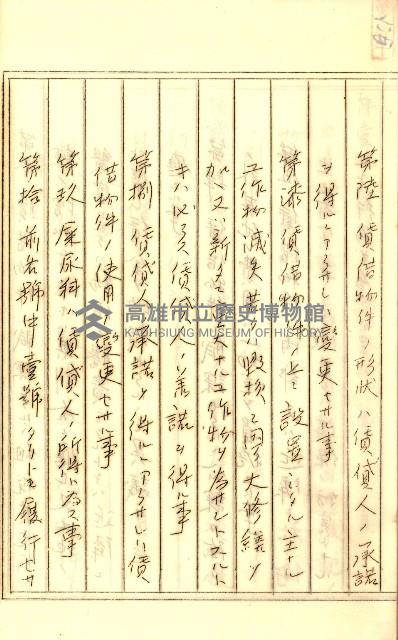 第陸 賃借物件ノ形狀ハ賃貸人ノ承諾
ヲ得ルニアラザレハ變更セザル事
第漆 賃借物件上ニ設置シタル主ナル
工作物滅失若クハ毀損ニ因リ大修繕ヲ
加ヘ又ハ新タニ重大ナル工作物ヲ為サントスルト
キハ必ス賃貸人ノ承諾ヲ得ル事
第捌 賃貸人ノ承諾ヲ得ルニアラザレハ賃
借物件ノ使用ヲ變更セザル事
第玖 屎尿料ハ賃貸人ノ所得ト為ス事
第拾 前各號中壹號タリトモ履行セザ
高雄市立歷史博物館
KAOHSIUNG MUSEUM OF HISTORY